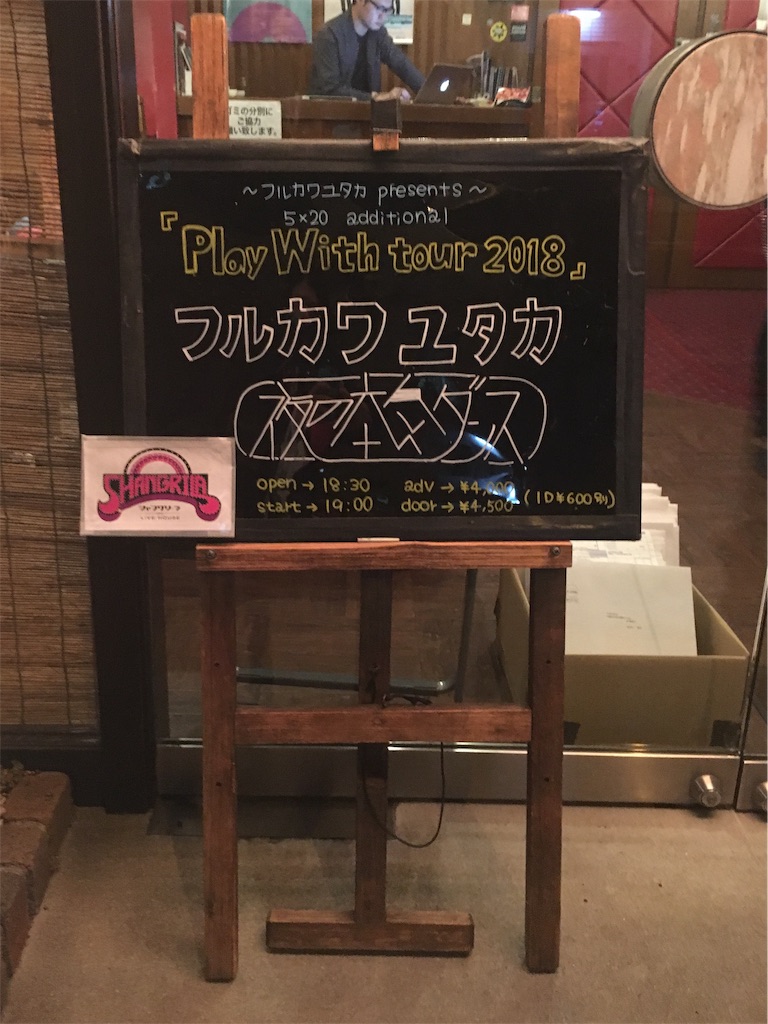 ゴミの分別に
ご協力
願い致します。
～フルカワユタカ presents～
5×20 additional
『Play With tour 2018』
フルカワユタカ
夜の本気ダンス
open → 18:30 adv → ¥4,000
start → 19:00 door → ¥4,500 (1D¥600別)
SHANGRI-LA
LIVE HOUSE